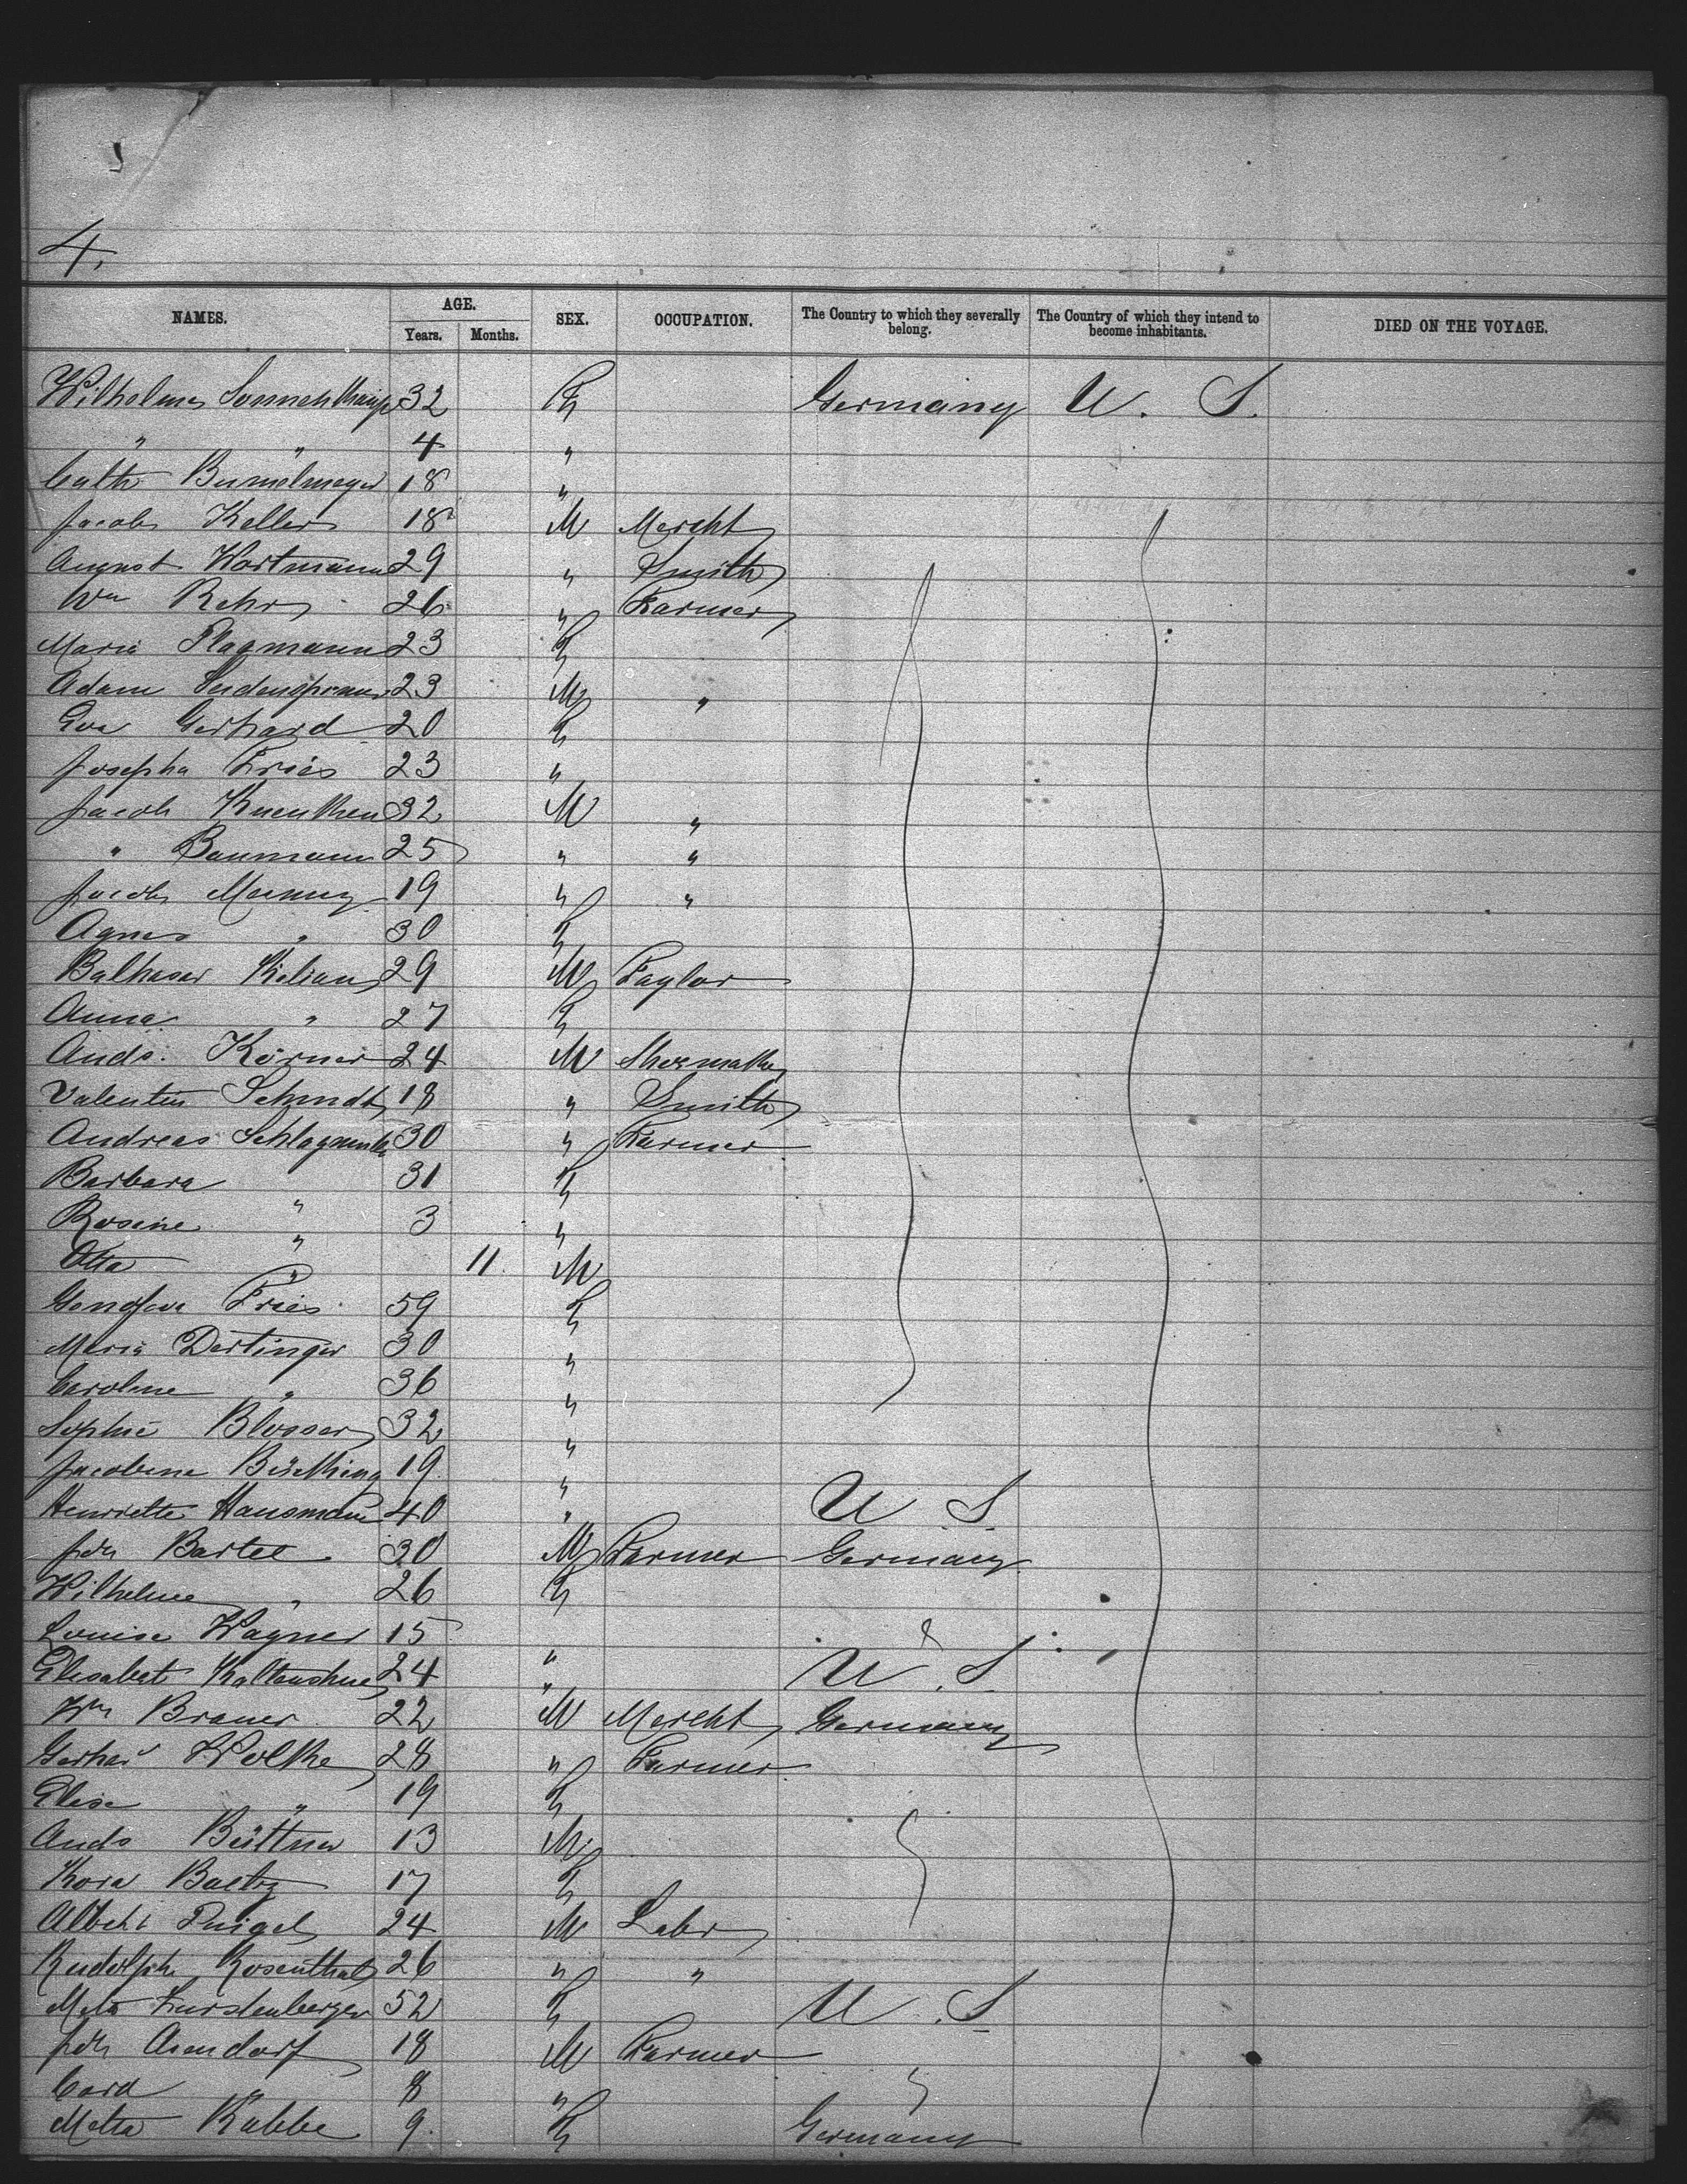 4.
NAMES. AGE. SEX. OCCUPATION. The Country to which they severally belong. The Country of which they intend to become inhabitants. DIED ON THE VOYAGE.
Years. Months.
Wilhelmine 32 F Germany U. S.
" " 4 "
Cath 18 "
Jacob Keller 18 M Mercht
August Wortmann 29 " Smith
Wm Rehr 26 " Farmer
Maria Plagmann 23 F
Adam 23 M "
Eva Gerhard 20 F
Josepha Fries 23 "
Jacob Kuenthen 32 M "
" Baumann 25 " "
Jacob 19 " "
Agnes " 30 F
Balthasar Kilian 29 M Taylor
Anna " 27 F
Andr. Körner 24 M Shoemaker
Valentin Schmdt 18 " Smith
Andreas 30 " Farmer
Barbara " 31 F
Rosine " 3 "
Otto " 11 M
Genofeva Fries 59 F
Maria Dertinger 30 "
Caroline " 36 "
Sophie Blosser 32 "
Jacobine 19 "
Henriette Hausmann 40 " U S
Joh Bartel 30 M Farmer Germany
Wilhelmine " 26 F
Louise Wagner 15 "
Elisabet 24 " U. S
Wm Brauer 22 M Mercht Germany
Gerhard Wolke 28 " Farmer
Elise " 19 F
Andr Büttner 13 M
Kora 17 F
Albert 24 M Labr
Rudolph Rosenthal 26 " "
Meta Furstenberger 52 F U. S
Joh Arendorf 18 M Farmer "
Cord " 8 "
Metta Rabbe 9 F Germany